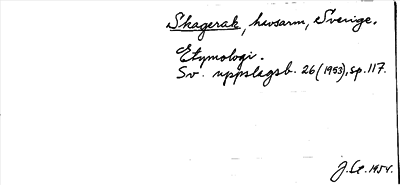 Skagerak, havsarm, Sverige.
Etymologi.
Sv. uppslagsb. 26 (1953), sp. 117.
J. Ce. 1954.